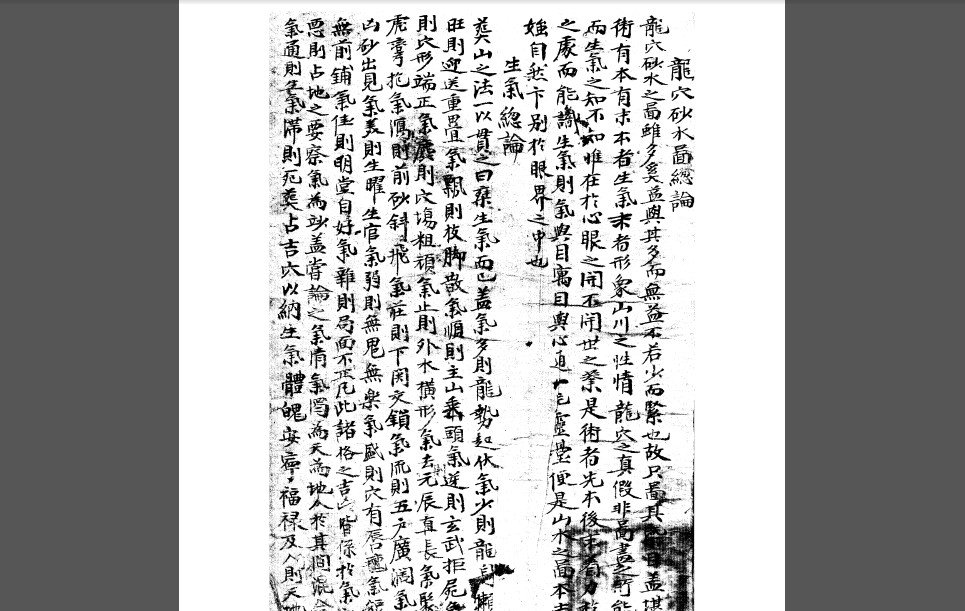 龍穴砂水啚總論
龍穴砂水之啚雖多奚益與其多而無益不若少而緊也故只啚其 目盖堪
術有本有末本者生氣末者形象山川之性情龍穴之真假非啚畫之所能
而生氣之知不知惟在於心眼之開不開世之業是術者先本後末有力
之處而能識生氣則氣與目寓目與心通 靈臺便是山水之啚本
媸自然卞別於眼界之中也
生氣總論
葬山之法一以貫之曰乘生氣而已盖氣多則龍勢起伏氣少則龍身懶
旺則迎送重疊氣飄則枝脚散氣順則主山垂頭氣逆則玄武拒屍氣
則穴形端正氣 則穴塲粗頑氣止則外水橫形氣去元辰直長氣聚
虎 抱氣瀉則前砂斜飛氣莊則下関交鎖氣流則五戶廣濶氣
凶砂出見氣美則生曜生官氣弱則無鬼無樂氣盛則穴有唇 氣
無前鋪氣佳則明堂自好氣雜則局面不正凡此諸格之吉凶皆係於氣
惡則占地之要察氣為 盖嘗論之氣淸氣濁為天為地人於其間混
氣通則生氣滯則死葬占吉穴以納生氣體魄安寧福祿及人則天地